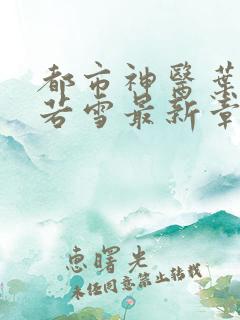 都市神醫葉
若雪最新章
恵曙光
未经同意禁止转载